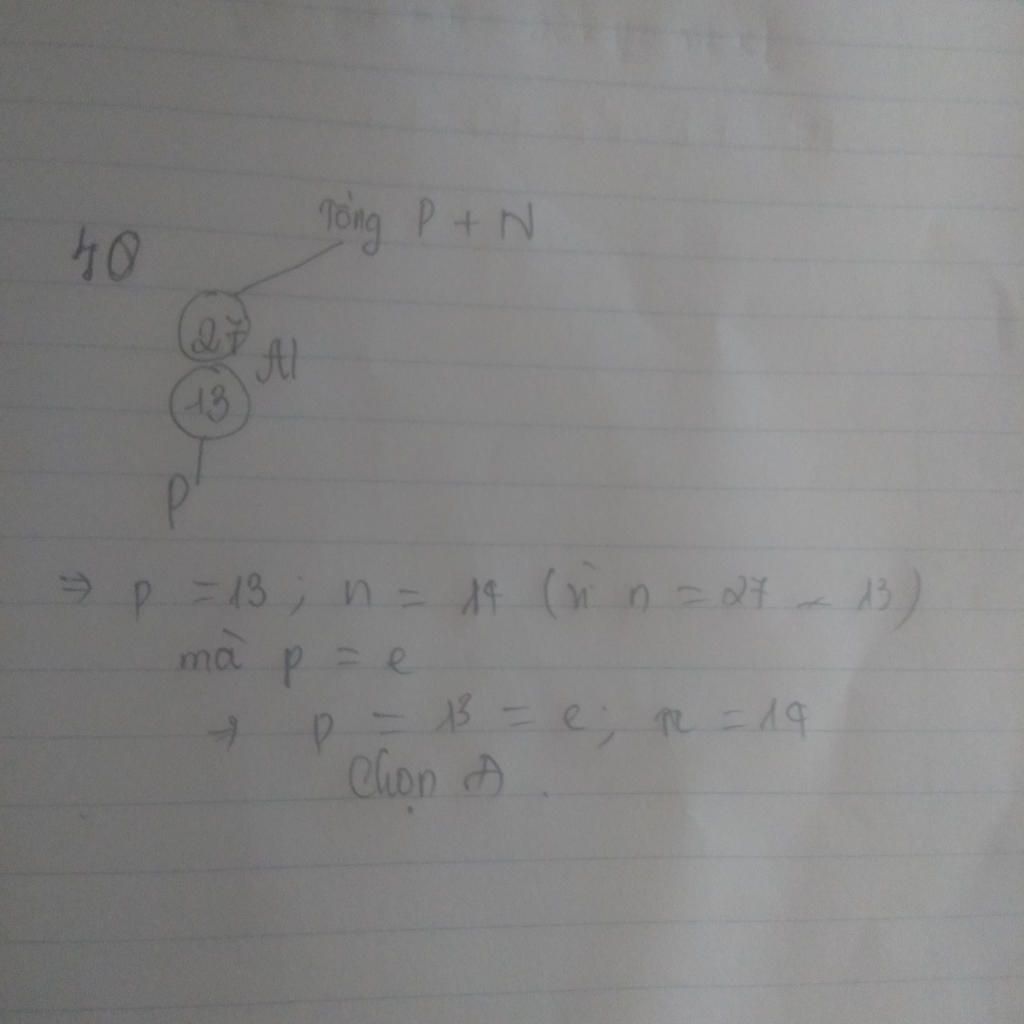 Tổng P + N
40
27
Al
13
P
⇒ p = 13 ; n = 14 (vì n = 27 - 13)
mà p = e
→ p = 13 = e ; n = 14
Chọn A .